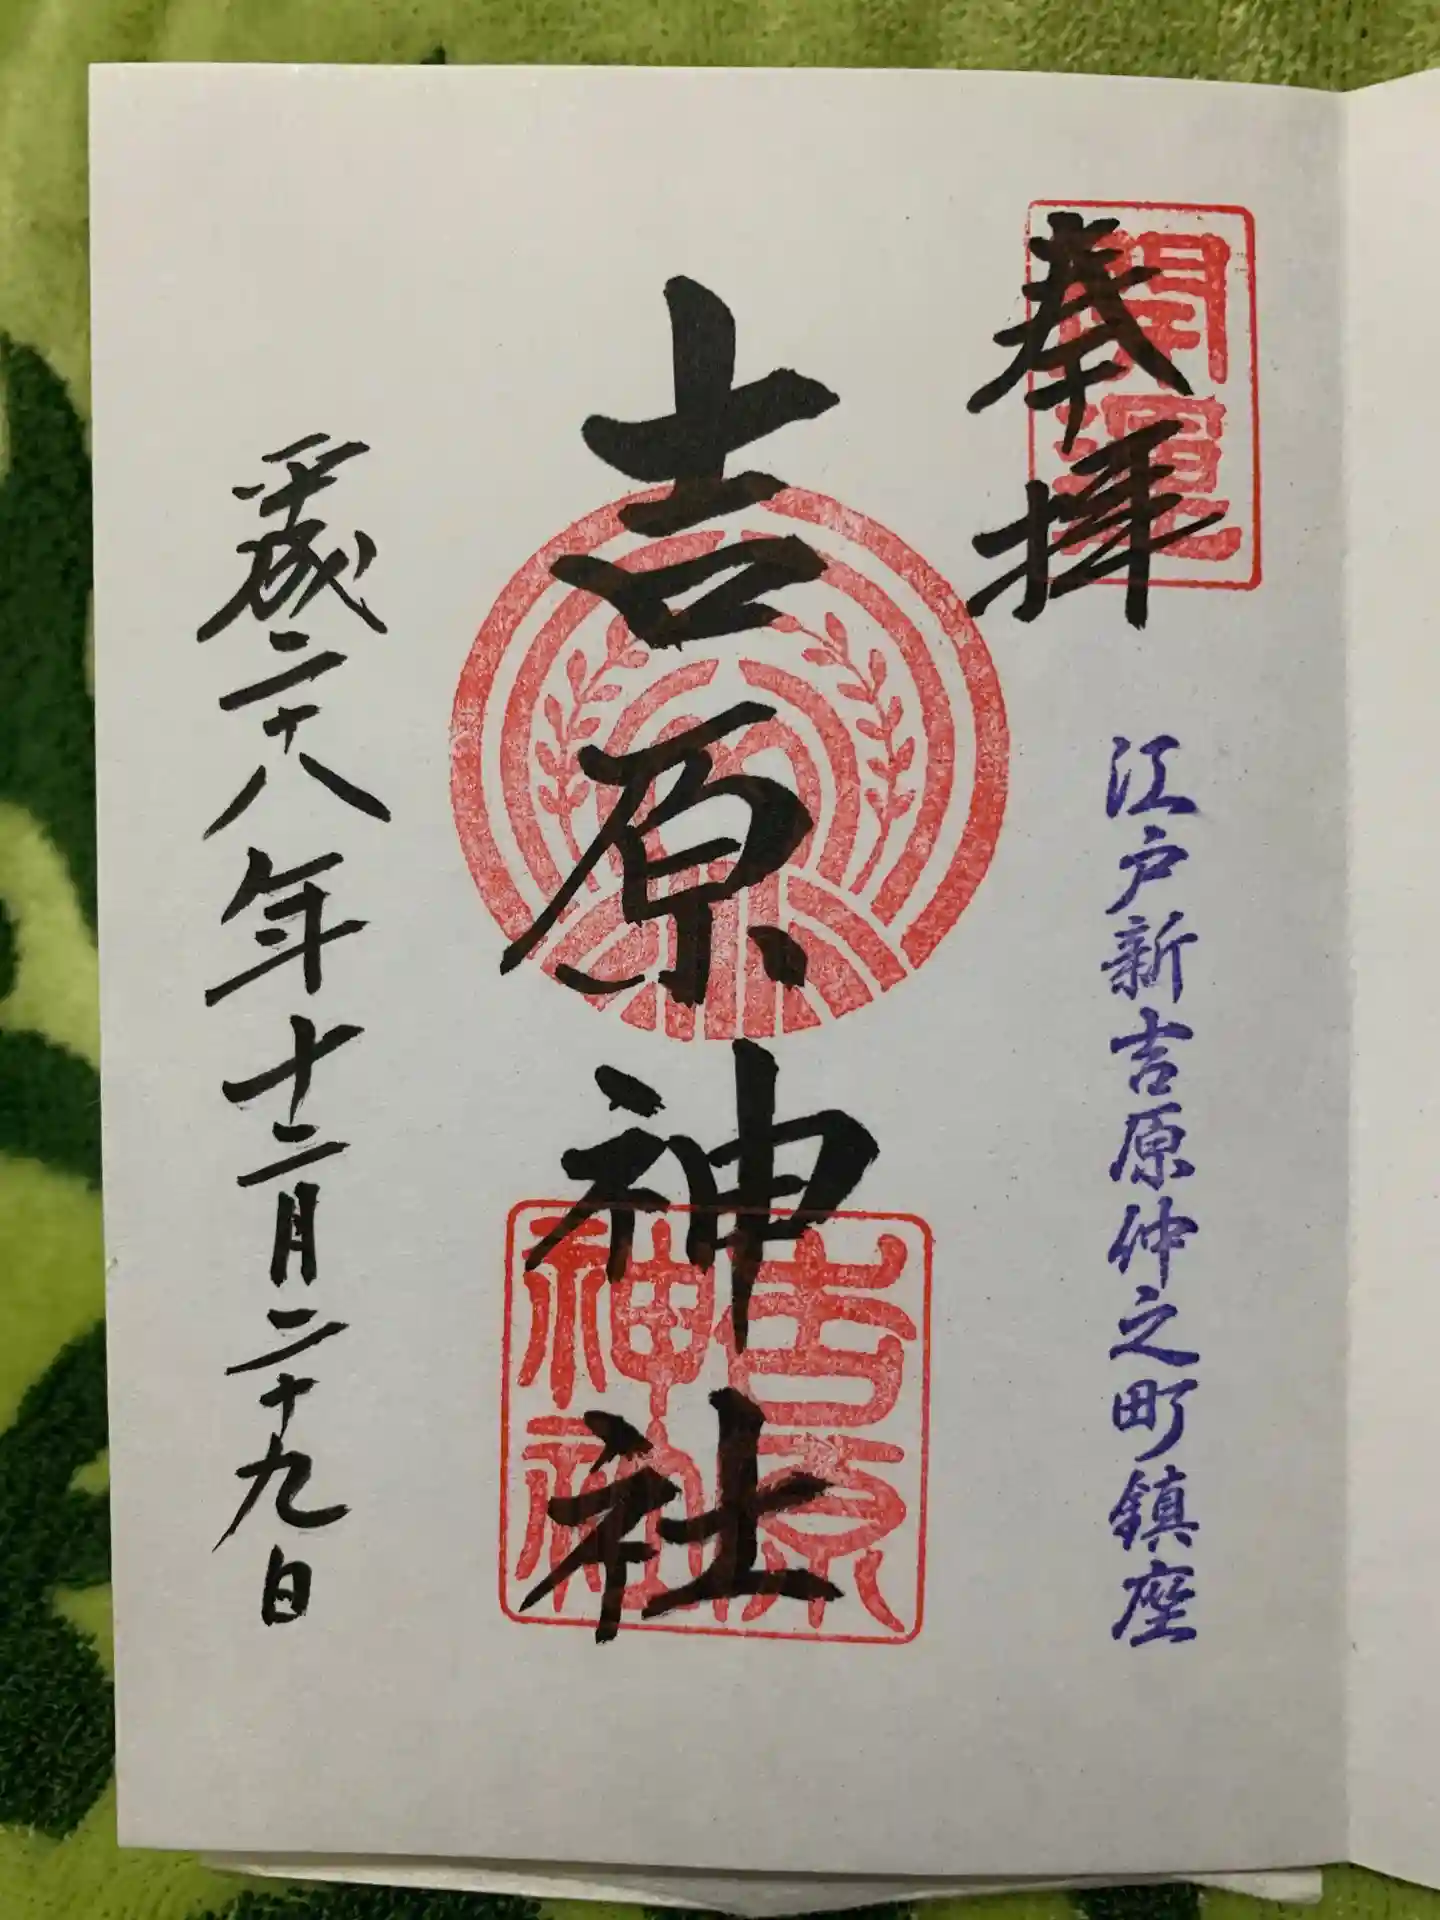 奉拝
開運
江戸新吉原仲之町鎮座
吉原神社
吉原
神社
平成二十八年十二月二十九日